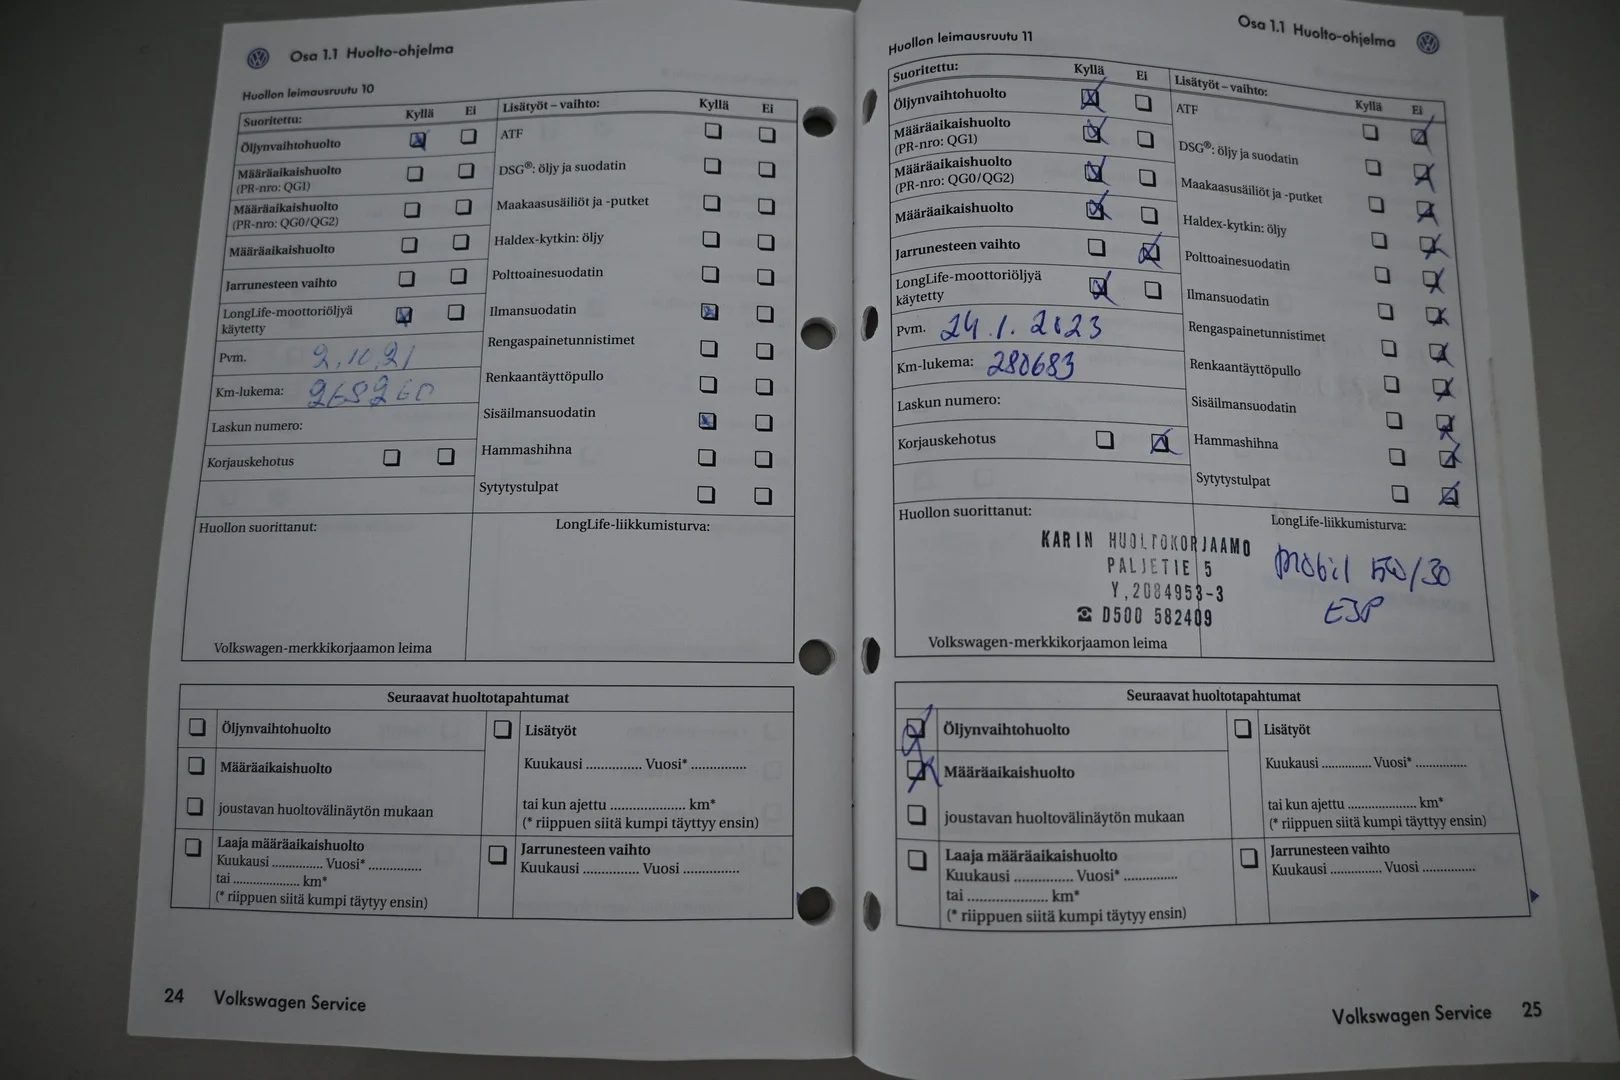 Osa 1.1 Huolto-ohjelma
Huollon leimausruutu 10
Suoritettu: Kyllä Ei
Öljynvaihtohuolto
Määräaikaishuolto
(PR-nro: QG1)
Määräaikaishuolto
(PR-nro: QG0/QG2)
Määräaikaishuolto
Jarrunesteen vaihto
LongLife-moottoriöljyä
käytetty
Pvm. 2.10.21
Km-lukema: 268260
Laskun numero:
Korjauskehotus
Lisätyöt – vaihto: Kyllä Ei
ATF
DSG®: öljy ja suodatin
Maakaasusäiliöt ja -putket
Haldex-kytkin: öljy
Polttoainesuodatin
Ilmansuodatin
Rengaspainetunnistimet
Renkaantäyttöpullo
Sisäilmansuodatin
Hammashihna
Sytytystulpat
Huollon suorittanut:
Volkswagen-merkkikorjaamon leima
LongLife-liikkumisturva:
Seuraavat huoltotapahtumat
Öljynvaihtohuolto
Määräaikaishuolto
joustavan huoltovälinäytön mukaan
Laaja määräaikaishuolto
Kuukausi .............. Vuosi* ..............
tai .................... km*
(* riippuen siitä kumpi täytyy ensin)
Lisätyöt
Kuukausi .............. Vuosi* ..............
tai kun ajettu .................... km*
(* riippuen siitä kumpi täyttyy ensin)
Jarrunesteen vaihto
Kuukausi .............. Vuosi ..............
24 Volkswagen Service
Osa 1.1 Huolto-ohjelma
Huollon leimausruutu 11
Suoritettu: Kyllä Ei
Öljynvaihtohuolto
Määräaikaishuolto
(PR-nro: QG1)
Määräaikaishuolto
(PR-nro: QG0/QG2)
Määräaikaishuolto
Jarrunesteen vaihto
LongLife-moottoriöljyä
käytetty
Pvm. 24.1.2023
Km-lukema: 280683
Laskun numero:
Korjauskehotus
Lisätyöt – vaihto: Kyllä Ei
ATF
DSG®: öljy ja suodatin
Maakaasusäiliöt ja -putket
Haldex-kytkin: öljy
Polttoainesuodatin
Ilmansuodatin
Rengaspainetunnistimet
Renkaantäyttöpullo
Sisäilmansuodatin
Hammashihna
Sytytystulpat
Huollon suorittanut:
KARIN HUOLTOKORJAAMO
PALJETIE 5
Y,2084953-3
☎ 0500 582409
Volkswagen-merkkikorjaamon leima
LongLife-liikkumisturva:
Mobil 5W/30
ESP
Seuraavat huoltotapahtumat
Öljynvaihtohuolto
Määräaikaishuolto
joustavan huoltovälinäytön mukaan
Laaja määräaikaishuolto
Kuukausi .............. Vuosi* ..............
tai .................... km*
(* riippuen siitä kumpi täytyy ensin)
Lisätyöt
Kuukausi .............. Vuosi* ..............
tai kun ajettu .................... km*
(* riippuen siitä kumpi täyttyy ensin)
Jarrunesteen vaihto
Kuukausi .............. Vuosi ..............
Volkswagen Service 25